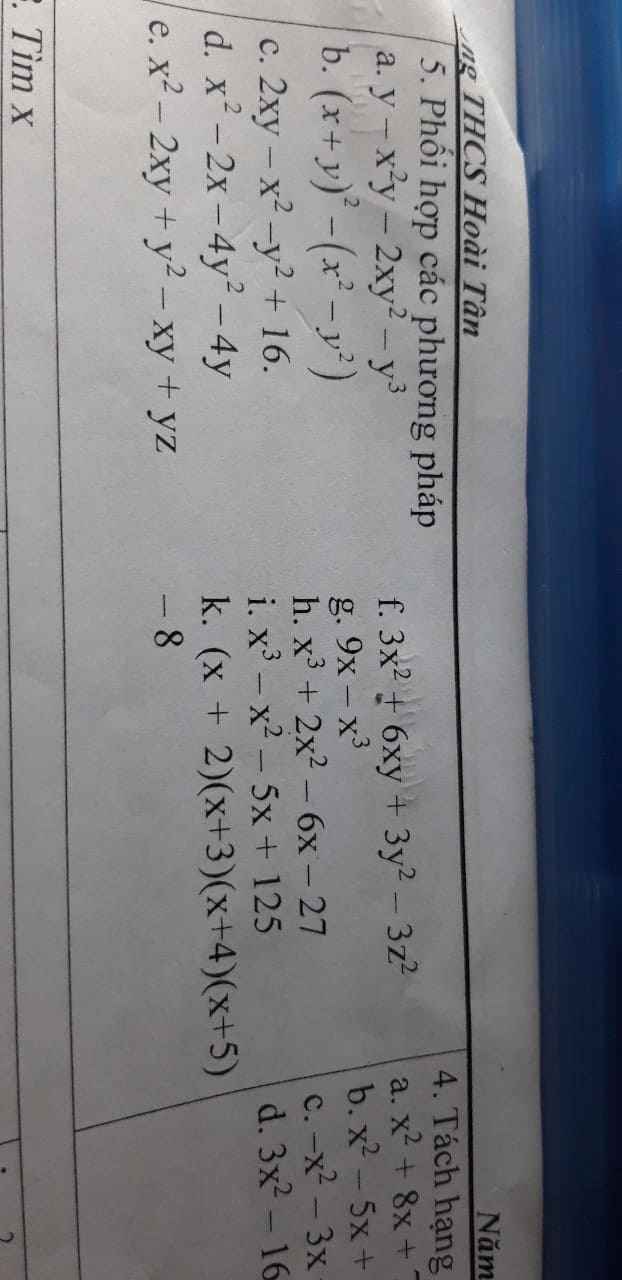 THCS Hoài Tân
Năm
5. Phối hợp các phương pháp
a. y – x²y – 2xy² – y³
b. (x + y)² – (x² – y²)
c. 2xy – x² –y² + 16.
d. x² – 2x – 4y² – 4y
e. x² – 2xy + y² – xy + yz
f. 3x² + 6xy + 3y² – 3z²
g. 9x – x³
h. x³ + 2x² – 6x – 27
i. x³ – x² – 5x + 125
k. (x + 2)(x+3)(x+4)(x+5)
– 8
4. Tách hạng
a. x² + 8x +
b. x² – 5x +
c. –x² – 3x
d. 3x² – 16
. Tìm x